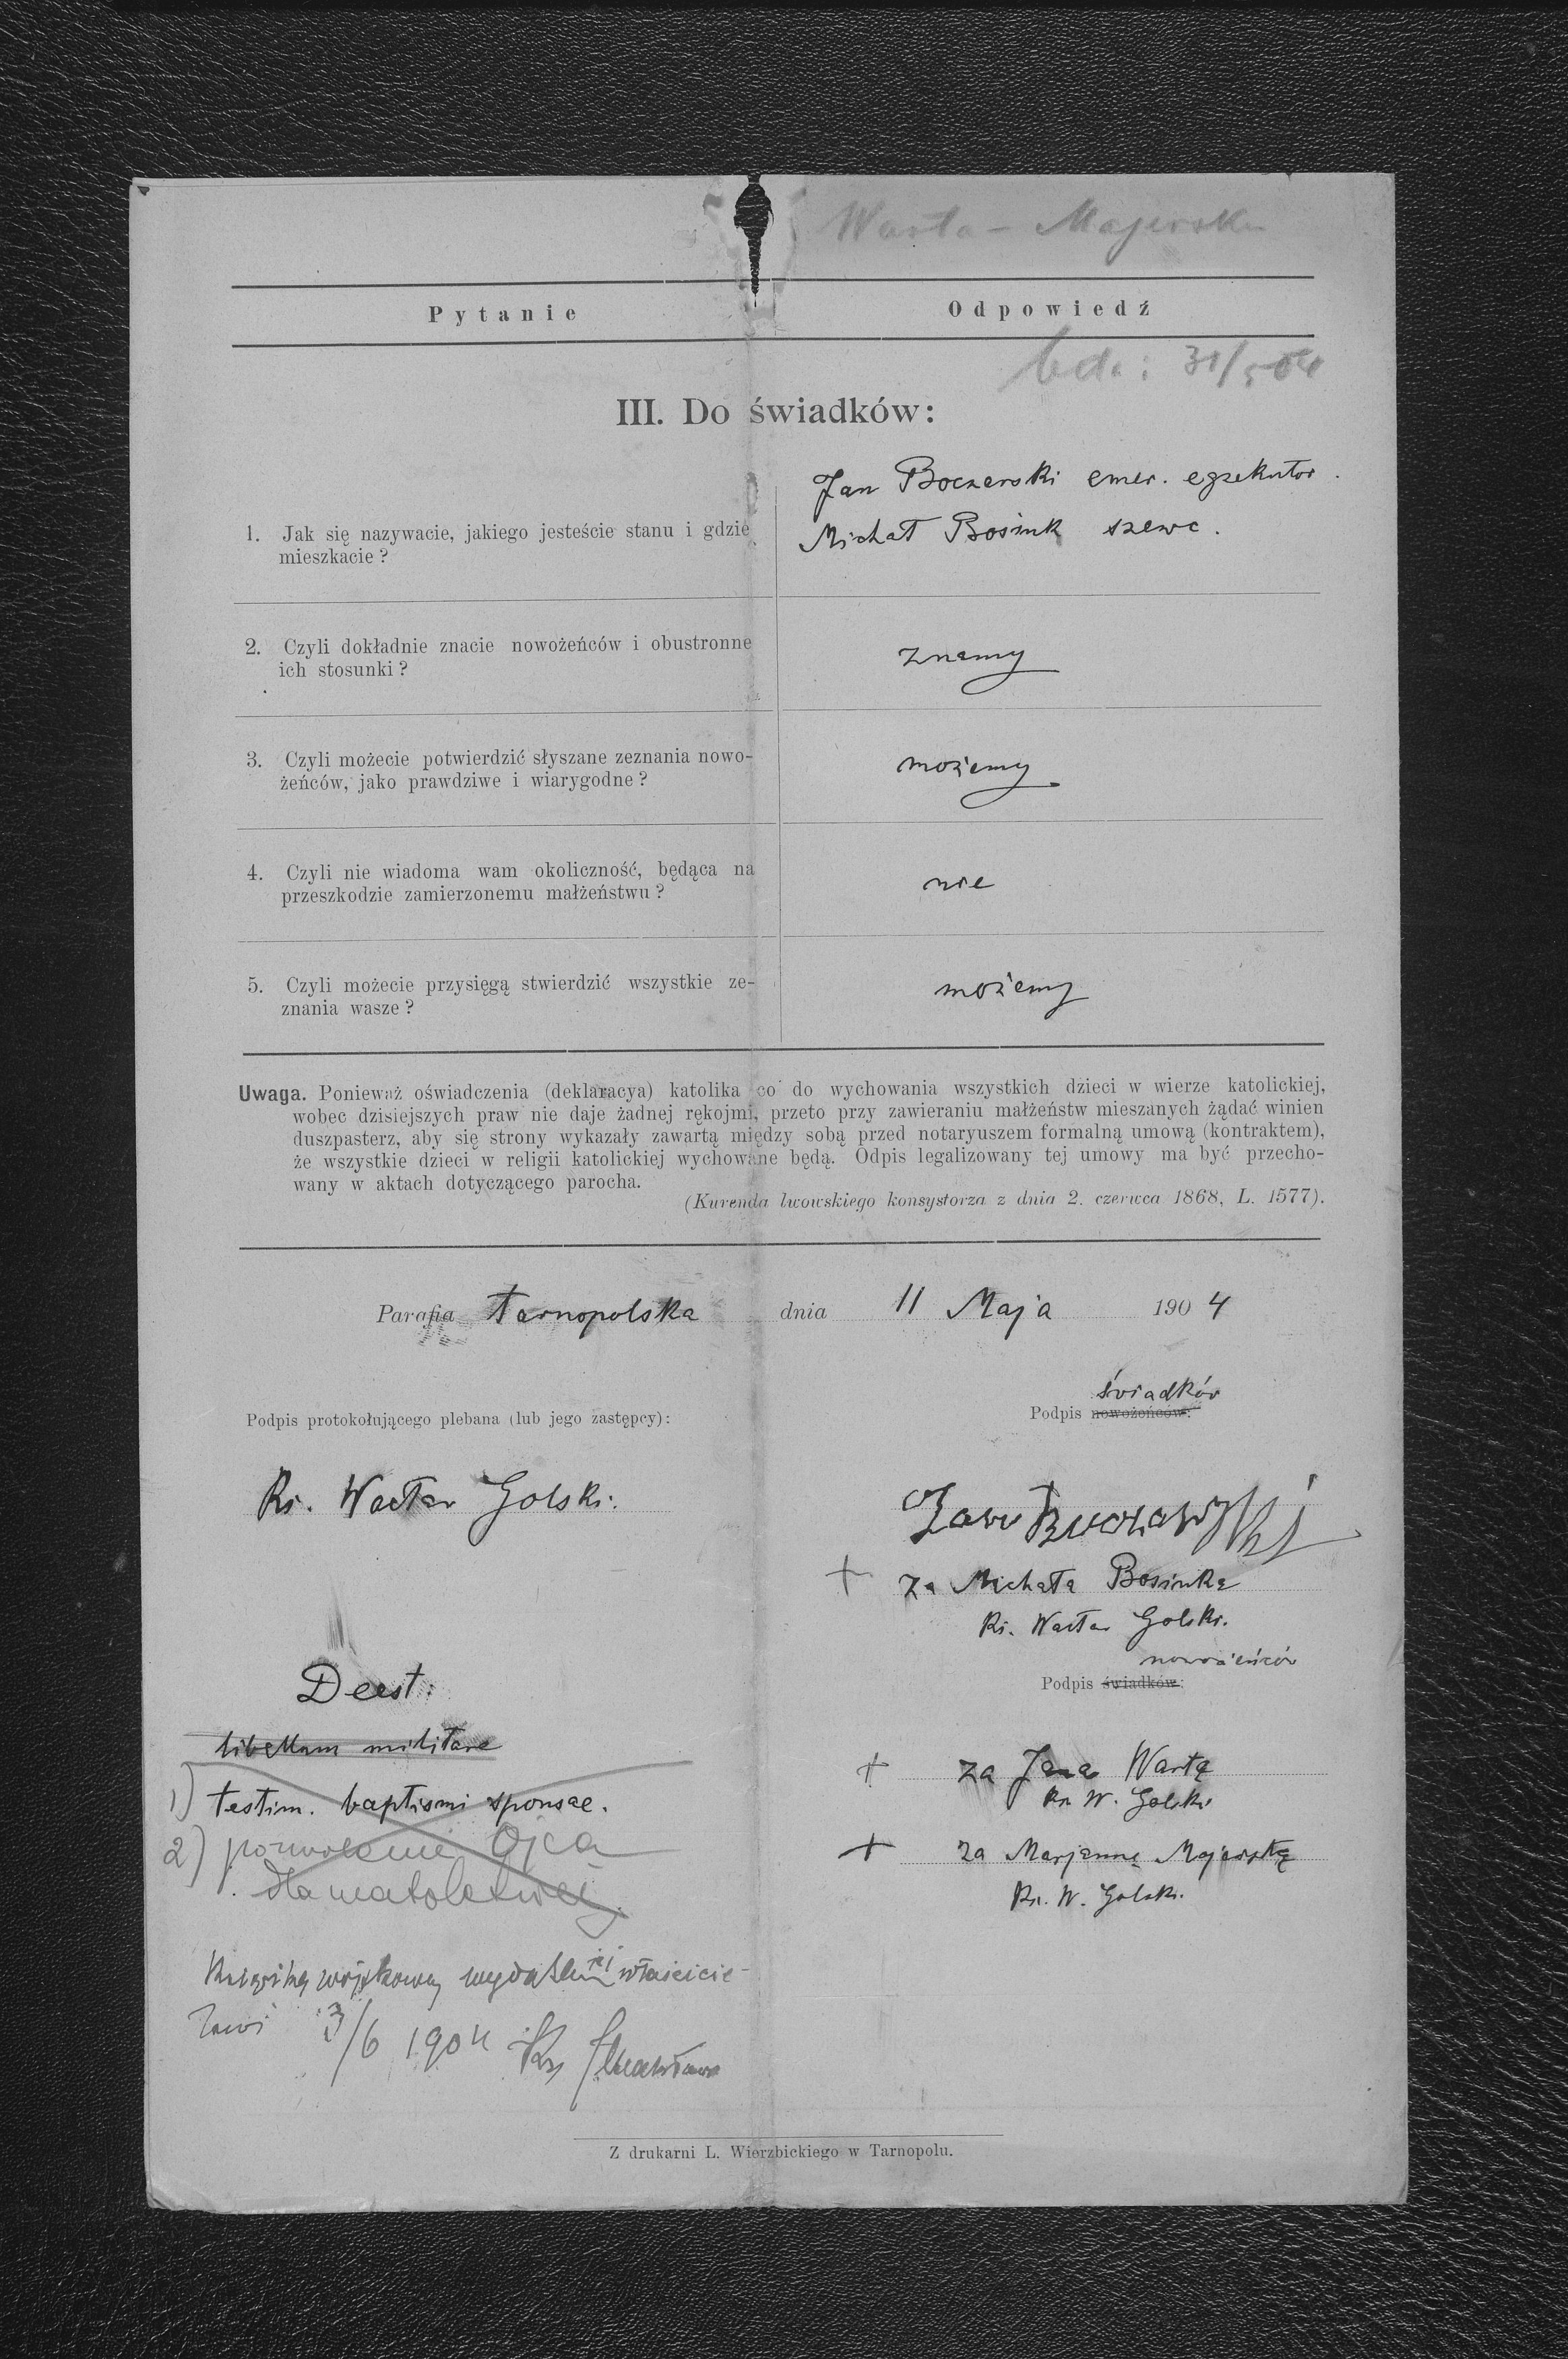 Warta – Majerska
Pytanie
Odpowiedź
31/5 04
III. Do świadków:
1. Jak się nazywacie, jakiego jesteście stanu i gdzie
mieszkacie?
Jan Boczerski emer. egzekutor.
Michał Bosiuk szewc.
2. Czyli dokładnie znacie nowożeńców i obustronne
ich stosunki?
znamy
3. Czyli możecie potwierdzić słyszane zeznania nowo-
żeńców, jako prawdziwe i wiarygodne?
możemy
4. Czyli nie wiadoma wam okoliczność, będąca na
przeszkodzie zamierzonemu małżeństwu?
nie
5. Czyli możecie przysięgą stwierdzić wszystkie ze-
znania wasze?
możemy
Uwaga. Ponieważ oświadczenia (deklaracya) katolika co do wychowania wszystkich dzieci w wierze katolickiej,
wobec dzisiejszych praw nie daje żadnej rękojmi, przeto przy zawieraniu małżeństw mieszanych żądać winien
duszpasterz, aby się strony wykazały zawartą między sobą przed notaryuszem formalną umową (kontraktem),
że wszystkie dzieci w religii katolickiej wychowane będą. Odpis legalizowany tej umowy ma być przecho-
wany w aktach dotyczącego parocha.
(Kurenda lwowskiego konsystorza z dnia 2. czerwca 1868, L. 1577).
Parafia Tarnopolska dnia 11 Maja 1904
świadków
Podpis protokołującego plebana (lub jego zastępcy):
Podpis nowożeńców:
Ks. Wacław Golski.
Jan
+ za Michała Bosiuka
Ks. Wacław Golski.
nowożeńców
Podpis świadków:
Deest:
libellum militare
1) testim. baptismi sponsae.
2) pozwolenie Ojca
dla małoletniej
+ za Jana Wartę
Ks. W. Golski
+ za Marjannę Majerską
Ks. W. Golski.
Książkę wojskową wydałem właścicie-
lowi 3/6 1904 Ks
Z drukarni L. Wierzbickiego w Tarnopolu.